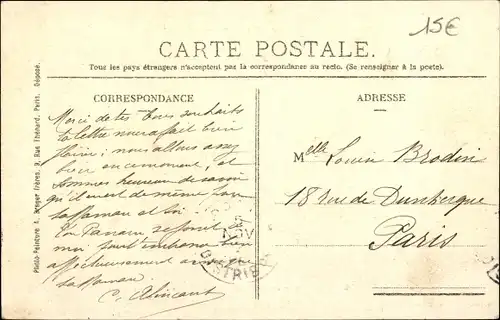 15€
CARTE POSTALE.
Tous les pays étrangers n'acceptent pas la correspondance au recto. (Se renseigner à la poste).
Photo-Peinture A. Breger frères, 9, Rue Thénard, Paris. Déposé.
CORRESPONDANCE
Merci de tes bons souhaits
ta lettre nous a fait bien
plaisir; nous allons assez
bien en ce moment, et
sommes heureux de savoir
qu'il en est de même pour
ta maman et toi.
Ton
moi pour t'embrasser bien
affectueusement ainsi que
ta maman
C.
NOV
DISTRIB
ADRESSE
Melle Louise Brodin
18 rue de Dunkerque
Paris